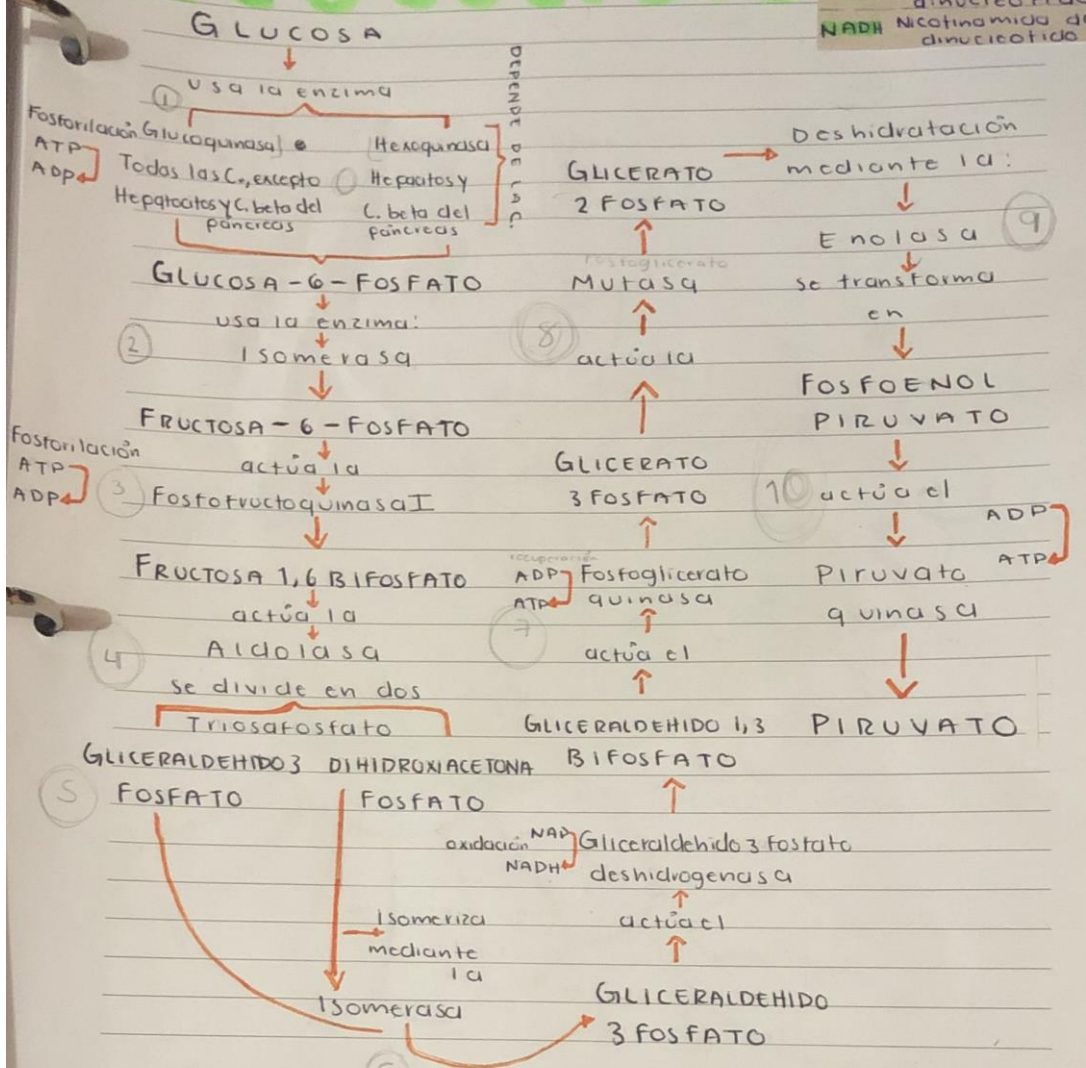 NADH Nicotinamida
dinucleotido
GLUCOSA
usa la enzima
1
Fosforilación
ATP
ADP
Glucoquinasa
Todas las C., excepto
Hepatocitos y C. beta del
páncreas
Hexoquinasa
Hepacitos y
C. beta del
páncreas
DEPENDE DE LA C.
GLUCOSA-6-FOSFATO
usa la enzima:
2
Isomerasa
FRUCTOSA-6-FOSFATO
actúa la
Fosforilación
ATP
ADP
3
Fosfofructoquinasa I
FRUCTOSA 1,6 BIFOSFATO
actúa la
4
Aldolasa
se divide en dos
Triosafosfato
5
GLICERALDEHIDO 3
FOSFATO
DIHIDROXIACETONA
FOSFATO
Isomeriza
mediante
la
Isomerasa
GLICERALDEHIDO
3 FOSFATO
actúa el
Gliceraldehido 3 fosfato
deshidrogenasa
oxidación NAD
NADH
GLICERALDEHIDO 1,3
BIFOSFATO
actúa el
7
Fosfoglicerato
quinasa
recuperación
ADP
ATP
GLICERATO
3 FOSFATO
actúa la
8
Fosfoglicerato
Mutasa
GLICERATO
2 FOSFATO
Deshidratación
mediante la:
Enolasa
9
se transforma
en
FOSFOENOL
PIRUVATO
10
actúa el
ADP
ATP
Piruvato
quinasa
PIRUVATO